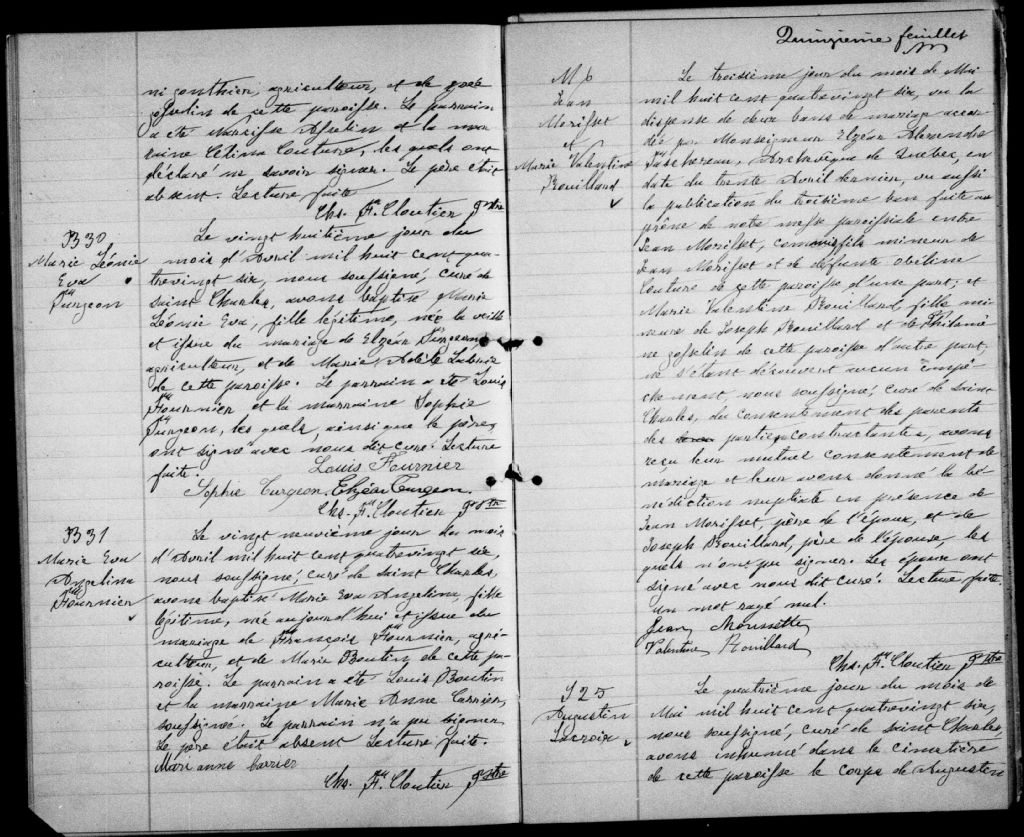 ni gonthier, agriculteur, et de
Asselin de cette paroisse. Le parrain
a été Narcisse Asselin et la mar
raine Célina Couture, les quels ont
déclaré ne savoir signer. Le père était
absent. Lecture faite
Chs. Frs. Cloutier Ptre
B 30
Marie Léonie
Eva
Turgeon
Le vingt huitième jour du
mois d'Avril mil huit cent qua
trevingt six, nous soussigné, curé de
saint Charles, avons baptisé Marie
Léonie Eva, fille légitime, née la veille
et issue du mariage de Elzéar Turgeon
agriculteur, et de Marie Adèle Labrie
de cette paroisse. Le parrain a été Louis
Fournier et la marraine Sophie
Turgeon, les quels, ainsi que le père,
ont signé avec nous dit curé. Lecture
faite.
Louis Fournier
Sophie Turgeon, Elzéar Turgeon
Chs. Frs. Cloutier Ptre
B 31
Marie Eva
Angelina
Fournier
Le vingt neuvième jour du mois
d'Avril mil huit cent quatrevingt six,
nous soussigné, curé de saint Charles,
avons baptisé Marie Eva Angelina, fille
légitime, née aujourd'hui et issue du
mariage de François Fournier, agri-
culteur, et de Marie Boutin de cette pa-
roisse. Le parrain a été Louis Boutin
et la marraine Marie Anne Carrier,
soussignée. Le parrain n'a pu signer
Le père était absent Lecture faite.
Mari anne carrier
Chs. Frs. Cloutier Ptre
Quinzième feuillet
M 6
Jean
Morisset
et
Marie Valentine
Rouillard
Le troisième jour du mois de Mai
mil huit cent quatrevingt six, vu la
dispense de deux bans de mariage accor
dée par Monseigneur Elzéar Alexandre
Taschereau, Archevêque de Quebec, en
date du trente Avril dernier, vu aussi
la publication du troisième ban faite au
prône de notre messe paroissiale entre
Jean Morisset, fils mineur de
Jean Morisset et de défunte Obéline
Couture de cette paroisse d'une part; et
Marie Valentine Rouillard, fille mi
neure de Joseph Rouillard et de Philomè
ne gosselin de cette paroisse d'autre part,
ne s'étant découvert aucun empê
chement, nous soussigné, curé de saint
Charles, du consentement des parents
des parties contractantes, avons
reçu leur mutuel consentement de
mariage et leur avons donné la bé
nédiction nuptiale en présence de
Jean Morisset, père de l'époux, et de
Joseph Rouillard, père de l'épouse, les
quels n'ont pu signer. Les époux ont
signé avec nous dit curé. Lecture faite
un mot rayé nul.
Jean Moussette
Valentine Rouillard
Chs. Frs. Cloutier Ptre
S 25
Augustin
Lacroix
Le quatrième jour du mois de
Mai mil huit cent quatrevingt six,
nous soussigné, curé de saint Charles,
avons inhumé dans le cimetière
de cette paroisse le corps de Augustin